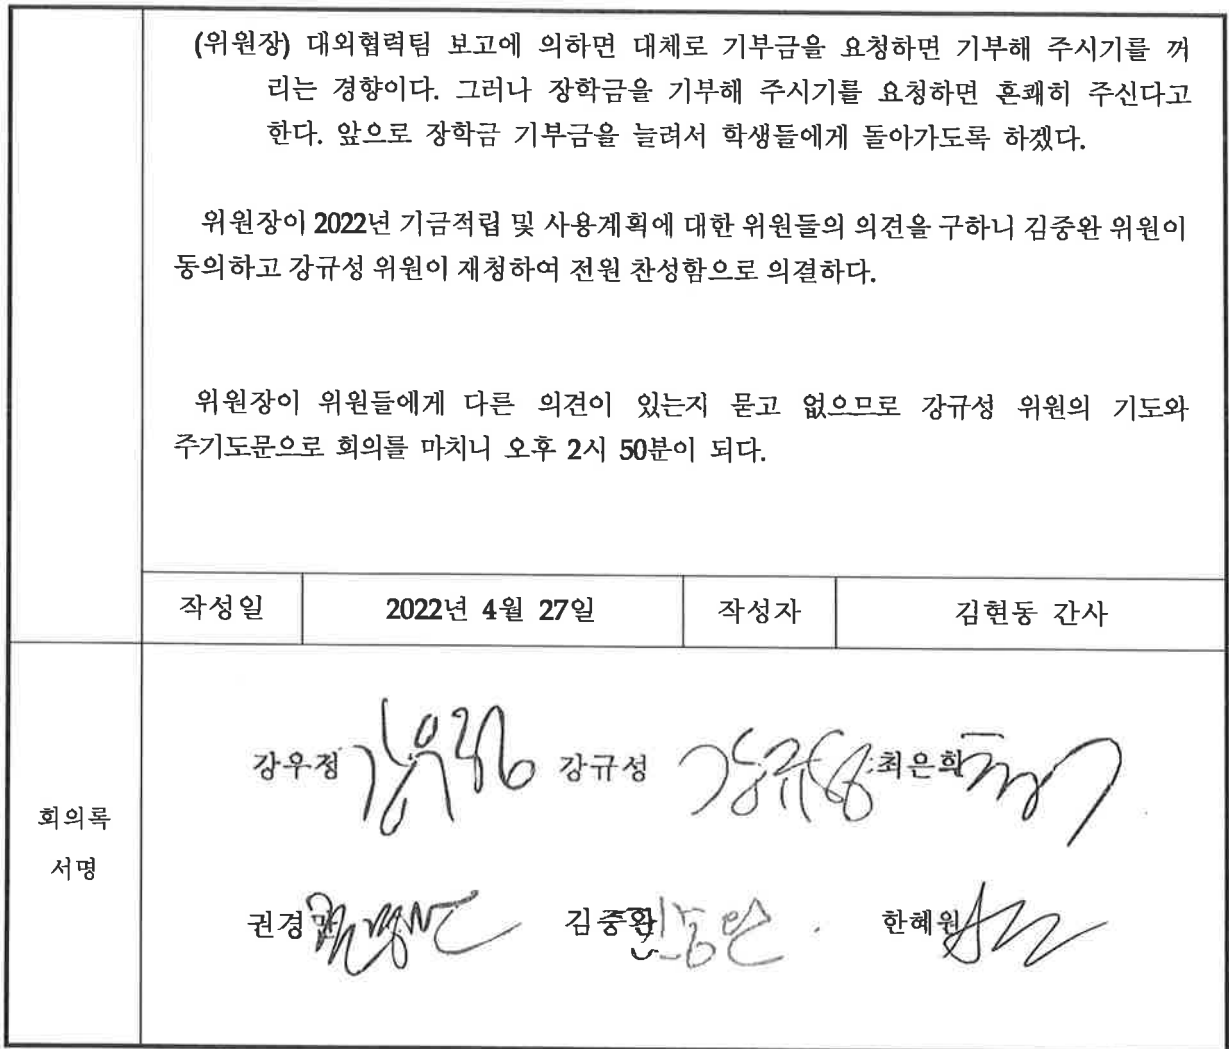 (위원장) 대외협력팀 보고에 의하면 대체로 기부금을 요청하면 기부해 주시기를 꺼
리는 경향이다. 그러나 장학금을 기부해 주시기를 요청하면 흔쾌히 주신다고
한다. 앞으로 장학금 기부금을 늘려서 학생들에게 돌아가도록 하겠다.
위원장이 2022년 기금적립 및 사용계획에 대한 위원들의 의견을 구하니 김중완 위원이
동의하고 강규성 위원이 재청하여 전원 찬성함으로 의결하다.
위원장이 위원들에게 다른 의견이 있는지 묻고 없으므로 강규성 위원의 기도와
주기도문으로 회의를 마치니 오후 2시 50분이 되다.
작성일 2022년 4월 27일 작성자 김현동 간사
회의록
서명
강우정 강규성 최은희
권경 김중완 한혜원